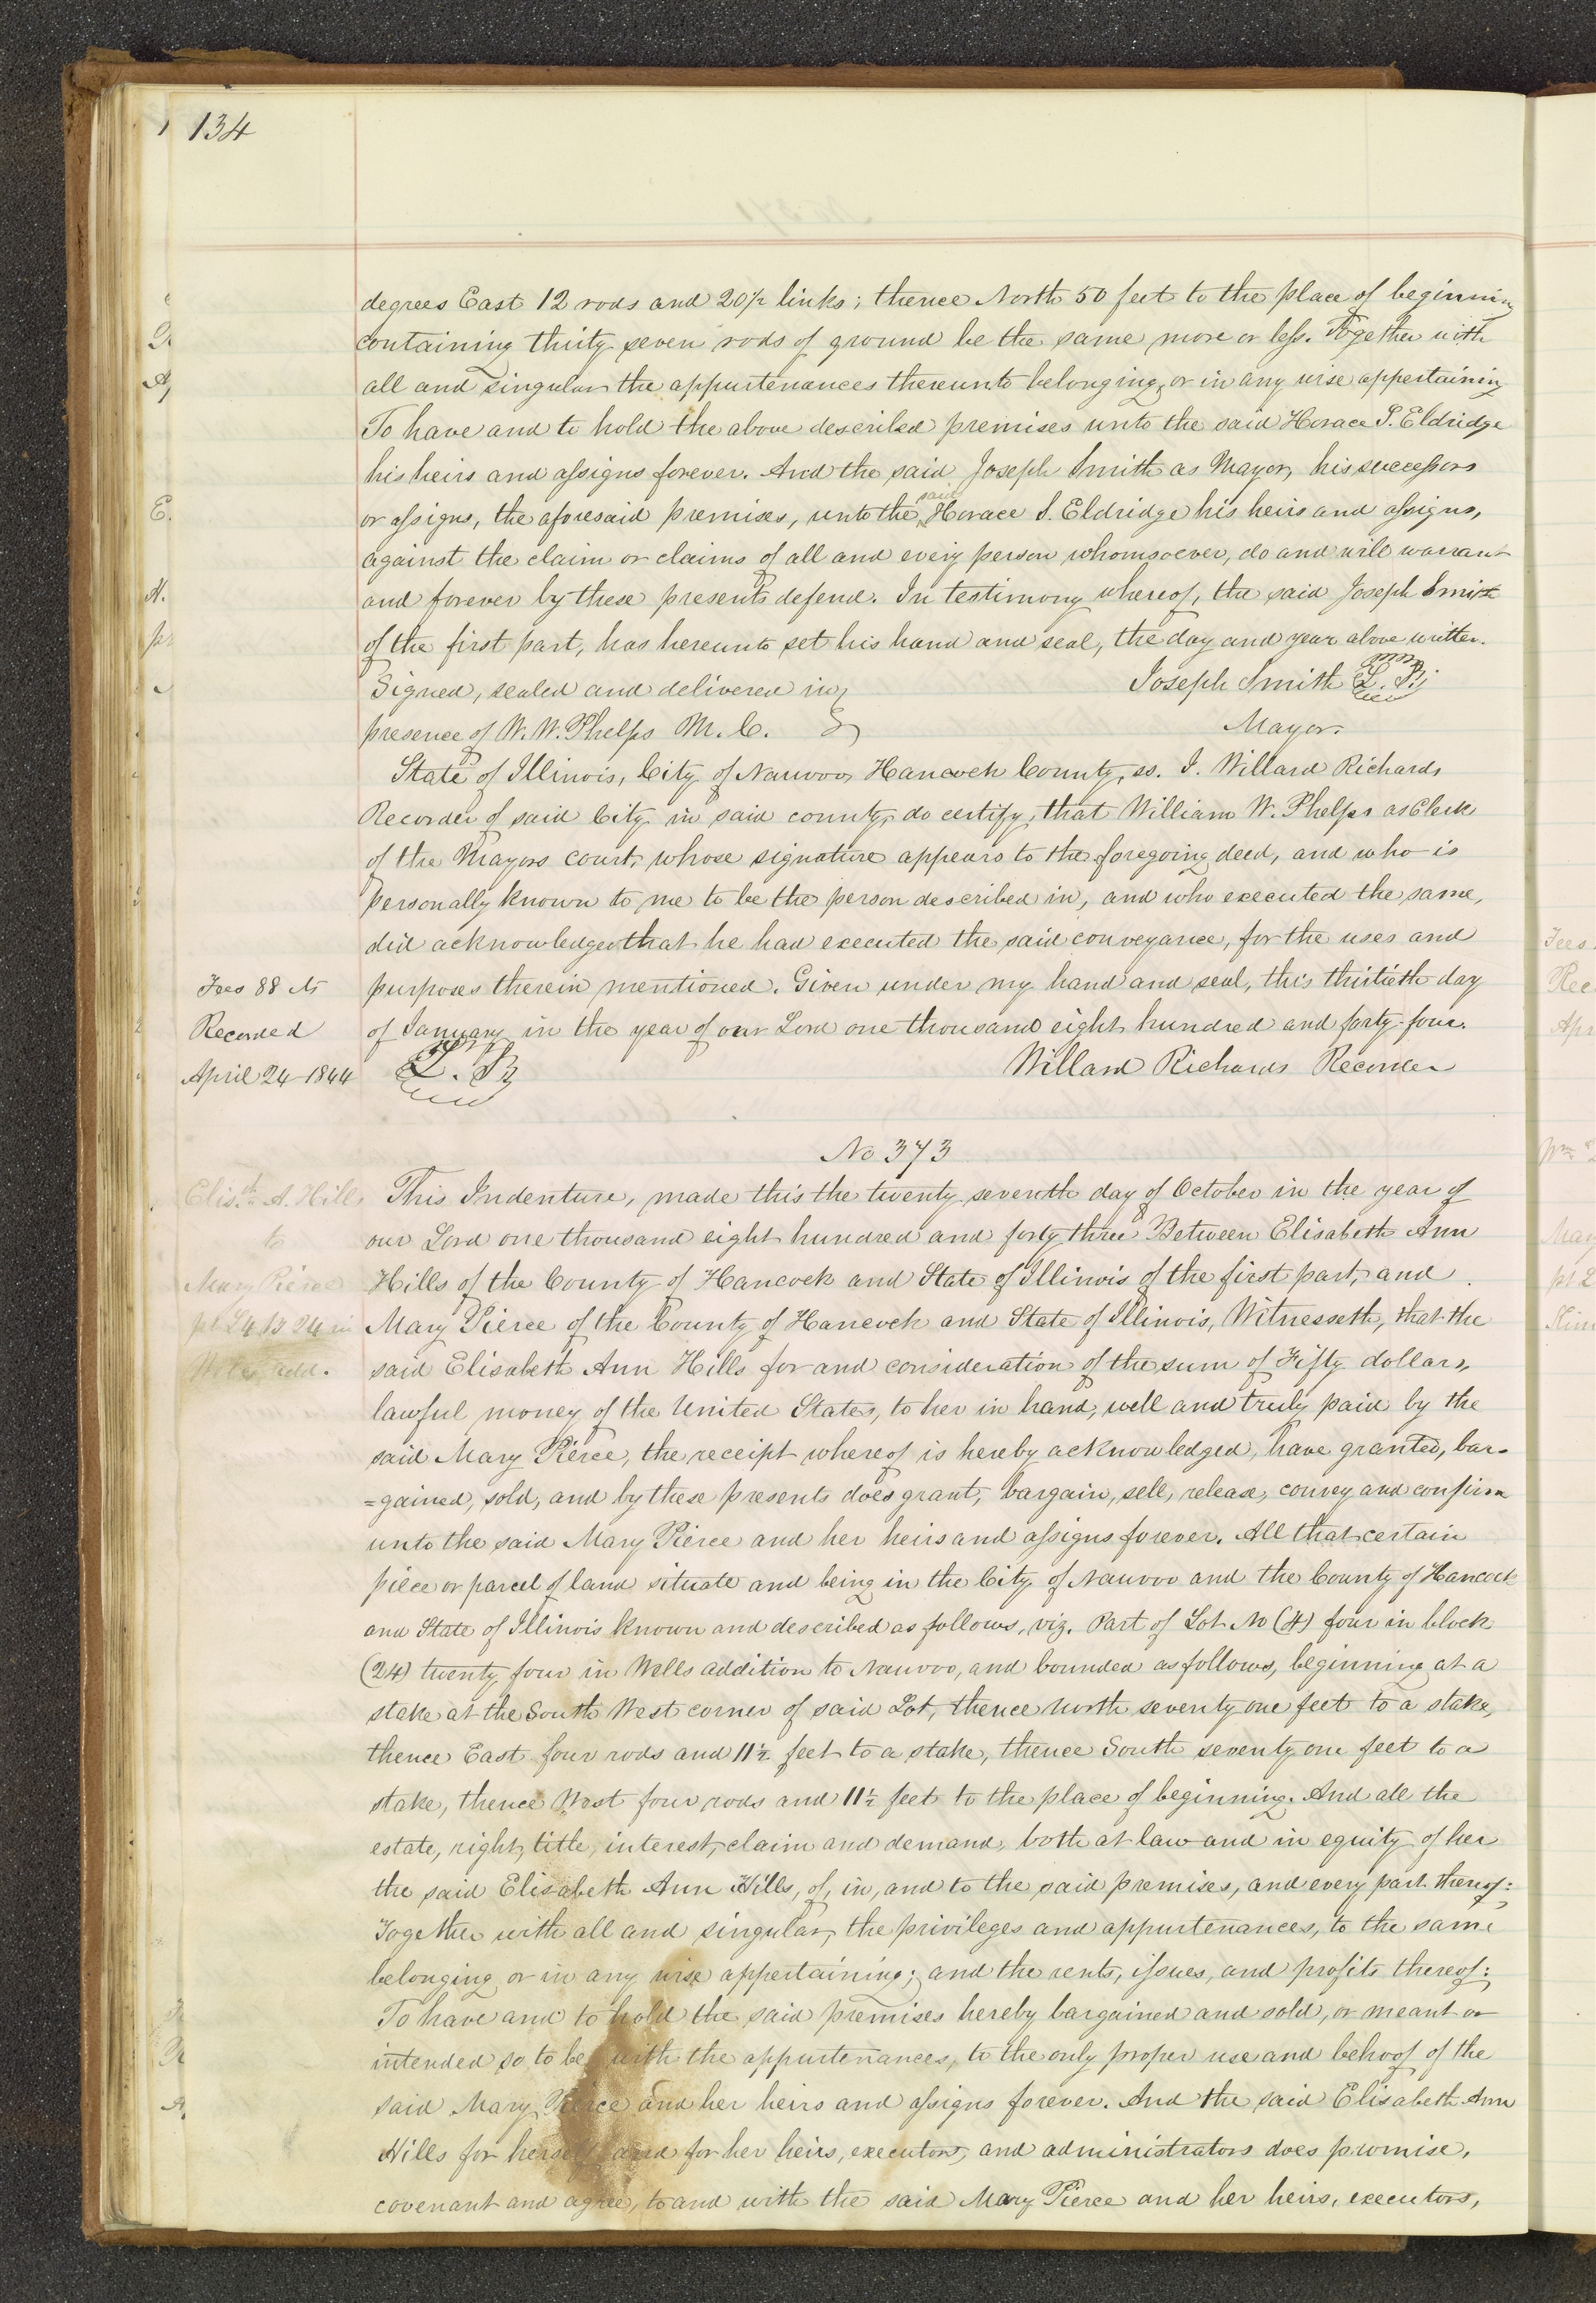 134
degrees East 12 rods and 20½ links; thence North 50 feet to the place of beginning
containing thirty seven rods of ground be the same more or less. Together with
all and singular the appurtenances thereunto belonging, or in any wise appertaining
To have and to hold the above described premises unto the said Horace S. Eldridge
his heirs and assigns forever. And the said Joseph Smith as Mayor, his successors
or assigns, the aforesaid premises, unto the said Horace S. Eldridge his heirs and assigns,
against the claim or claims of all and every person whomsoever, do and will warrant
and forever by these presents defend. In testimony whereof, the said Joseph Smith
of the first part, has hereunto set his hand and seal, the day and year above written.
Signed, sealed and delivered in Joseph Smith L. S.
presence of W. W. Phelps M. C. Mayor.
State of Illinois, City of Nauvoo, Hancock County, ss. I. Willard Richards
Recorder of said City in said county, do certify, that William W. Phelps as Clerk
of the Mayors court, whose signature appears to the foregoing deed, and who is
personally known to me to be the person described in, and who executed the same,
did acknowledge that he had executed the said conveyance, for the uses and
Fees 88 cts purposes therein mentioned. Given under my hand and seal, this thirtieth day
Recorded of January in the year of our Lord one thousand eight hundred and forty four.
April 24 1844 L. S. Willard Richards Recorder
No 373
Elis.th A. Hills This Indenture, made this the twenty seventh day of October in the year of
to our Lord one thousand eight hundred and forty three Between Elisabeth Ann
Mary Pierce Hills of the County of Hancock and State of Illinois of the first part, and
pt L4 B 24 in Mary Pierce of the County of Hancock and State of Illinois, Witnesseth, that the
Wells add. said Elisabeth Ann Hills for and consideration of the sum of Fifty dollars,
lawful money of the United States, to her in hand, well and truly paid by the
said Mary Pierce, the receipt whereof is hereby acknowledged, have granted, bar-
=gained, sold, and by these presents does grant, bargain, sell, release, convey and confirm
unto the said Mary Pierce and her heirs and assigns forever. All that certain
piece or parcel of land situate and being in the City of Nauvoo and the County of Hancock
and State of Illinois known and described as follows, viz. Part of Lot No (4) four in block
(24) twenty four in Wells addition to Nauvoo, and bounded as follows, beginning at a
stake at the South West corner of said Lot, thence North seventy one feet to a stake,
thence East four rods and 11½ feet to a stake, thence South seventy one feet to a
stake, thence West four rods and 11½ feet to the place of beginning. And all the
estate, right, title, interest, claim and demand, both at law and in equity of her
the said Elisabeth Ann Hills, of, in, and to the said premises, and every part thereof:
Together with all and singular, the privileges and appurtenances, to the same
belonging or in any wise appertaining; and the rents, issues, and profits thereof:
To have and to hold the said premises hereby bargained and sold, or meant or
intended so to be with the appurtenances, to the only proper use and behoof of the
said Mary Pierce and her heirs and assigns forever. And the said Elisabeth Ann
Hills for herself and for her heirs, executors, and administrators does promise,
covenant and agree, to and with the said Mary Pierce and her heirs, executors,